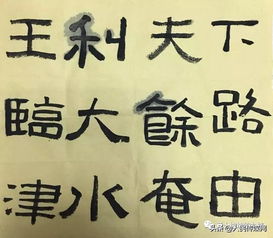 下路由
夫餘奄
利大水
王臨津